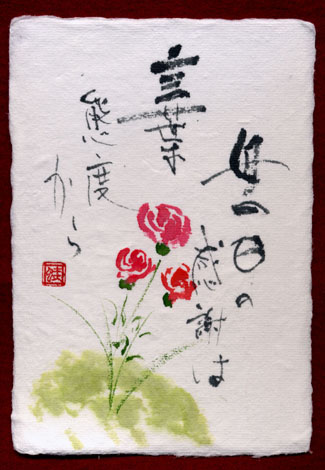 母の日の
感謝は
言葉
態度
から